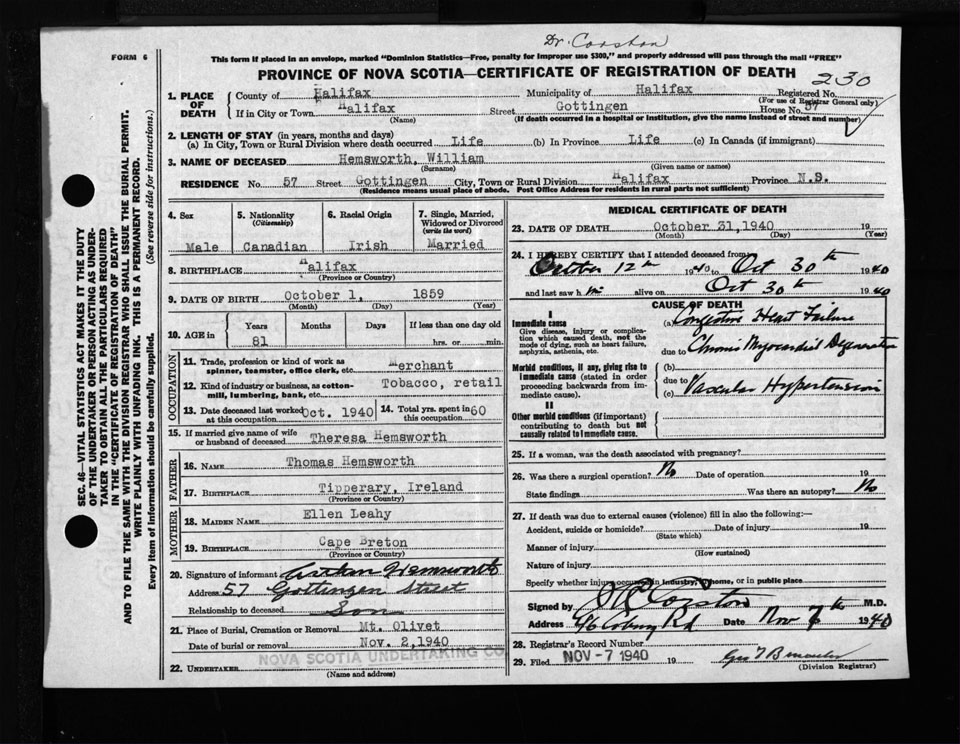 Dr. Coaston
FORM 6
This form if placed in an envelope, marked "Dominion Statistics—Free, penalty for improper use $300," and properly addressed will pass through the mail "FREE"
PROVINCE OF NOVA SCOTIA—CERTIFICATE OF REGISTRATION OF DEATH
230
1. PLACE OF DEATH
County of Halifax Municipality of Halifax Registered No.
(For use of Registrar General only)
If in City or Town Halifax Street Gottingen House No. 57
(Name) (If death occurred in a hospital or institution, give the name instead of street and number)
2. LENGTH OF STAY (in years, months and days)
(a) In City, Town or Rural Division where death occurred Life (b) In Province Life (c) In Canada (if immigrant)
3. NAME OF DECEASED Hemsworth, William
(Surname) (Given name or names)
RESIDENCE No. 57 Street Gottingen City, Town or Rural Division Halifax Province N.S.
(Residence means usual place of abode. Post Office Address for residents in rural parts not sufficient)
SEC. 46—VITAL STATISTICS ACT MAKES IT THE DUTY
OF THE UNDERTAKER OR PERSON ACTING AS UNDER-
TAKER TO OBTAIN ALL THE PARTICULARS REQUIRED
IN THE "CERTIFICATE OF REGISTRATION OF DEATH"
AND TO FILE THE SAME WITH THE DIVISION REGISTRAR WHO SHALL ISSUE THE BURIAL PERMIT.
WRITE PLAINLY WITH UNFADING INK. THIS IS A PERMANENT RECORD.
Every item of information should be carefully supplied. (See reverse side for instructions.)
4. Sex 5. Nationality (Citizenship) 6. Racial Origin 7. Single, Married, Widowed or Divorced (write the word)
Male Canadian Irish Married
8. BIRTHPLACE Halifax
(Province or Country)
9. DATE OF BIRTH October 1, 1859
(Month) (Day) (Year)
10. AGE in Years Months Days If less than one day old
81 hrs. or min.
OCCUPATION
11. Trade, profession or kind of work as spinner, teamster, office clerk, etc. Merchant
12. Kind of industry or business, as cotton-mill, lumbering, bank, etc. Tobacco, retail
13. Date deceased last worked at this occupation Oct. 1940 14. Total yrs. spent in this occupation 60
15. If married give name of wife or husband of deceased Theresa Hemsworth
FATHER
16. NAME Thomas Hemsworth
17. BIRTHPLACE Tipperary, Ireland
(Province or Country)
MOTHER
18. MAIDEN NAME Ellen Leahy
19. BIRTHPLACE Cape Breton
(Province or Country)
20. Signature of informant Hemsworth
Address 57 Gottingen Street
Relationship to deceased Son
21. Place of Burial, Cremation or Removal Mt. Olivet
Date of burial or removal Nov. 2, 1940
NOVA SCOTIA UNDERTAKING CO
22. UNDERTAKER
(Name and address)
MEDICAL CERTIFICATE OF DEATH
23. DATE OF DEATH October 31, 1940 19
(Month) (Day) (Year)
24. I HEREBY CERTIFY that I attended deceased from
October 12th 1940 to Oct 30th 1940
and last saw him alive on Oct 30th 1940
CAUSE OF DEATH
I
Immediate cause
Give disease, injury or complication which caused death, not the mode of dying, such as heart failure, asphyxia, asthenia, etc.
(a) Congestive Heart Failure
due to Chronic Myocardial Degeneration
Morbid conditions, if any, giving rise to immediate cause (stated in order proceeding backwards from immediate).
(b)
due to
(c) Vascular Hypertension
II
Other morbid conditions (if important) contributing to death but not causally related to immediate cause.
25. If a woman, was the death associated with pregnancy?
26. Was there a surgical operation? No Date of operation 19
State findings Was there an autopsy? No
27. If death was due to external causes (violence) fill in also the following:—
Accident, suicide or homicide? Date of injury 19
(State which)
Manner of injury
(How sustained)
Nature of injury
Specify whether injury occurred in industry, home, or in public place
Signed by M.D.
Address 46 Coburg Rd Date Nov 7th 1940
28. Registrar's Record Number
29. Filed NOV - 7 1940 19
(Division Registrar)